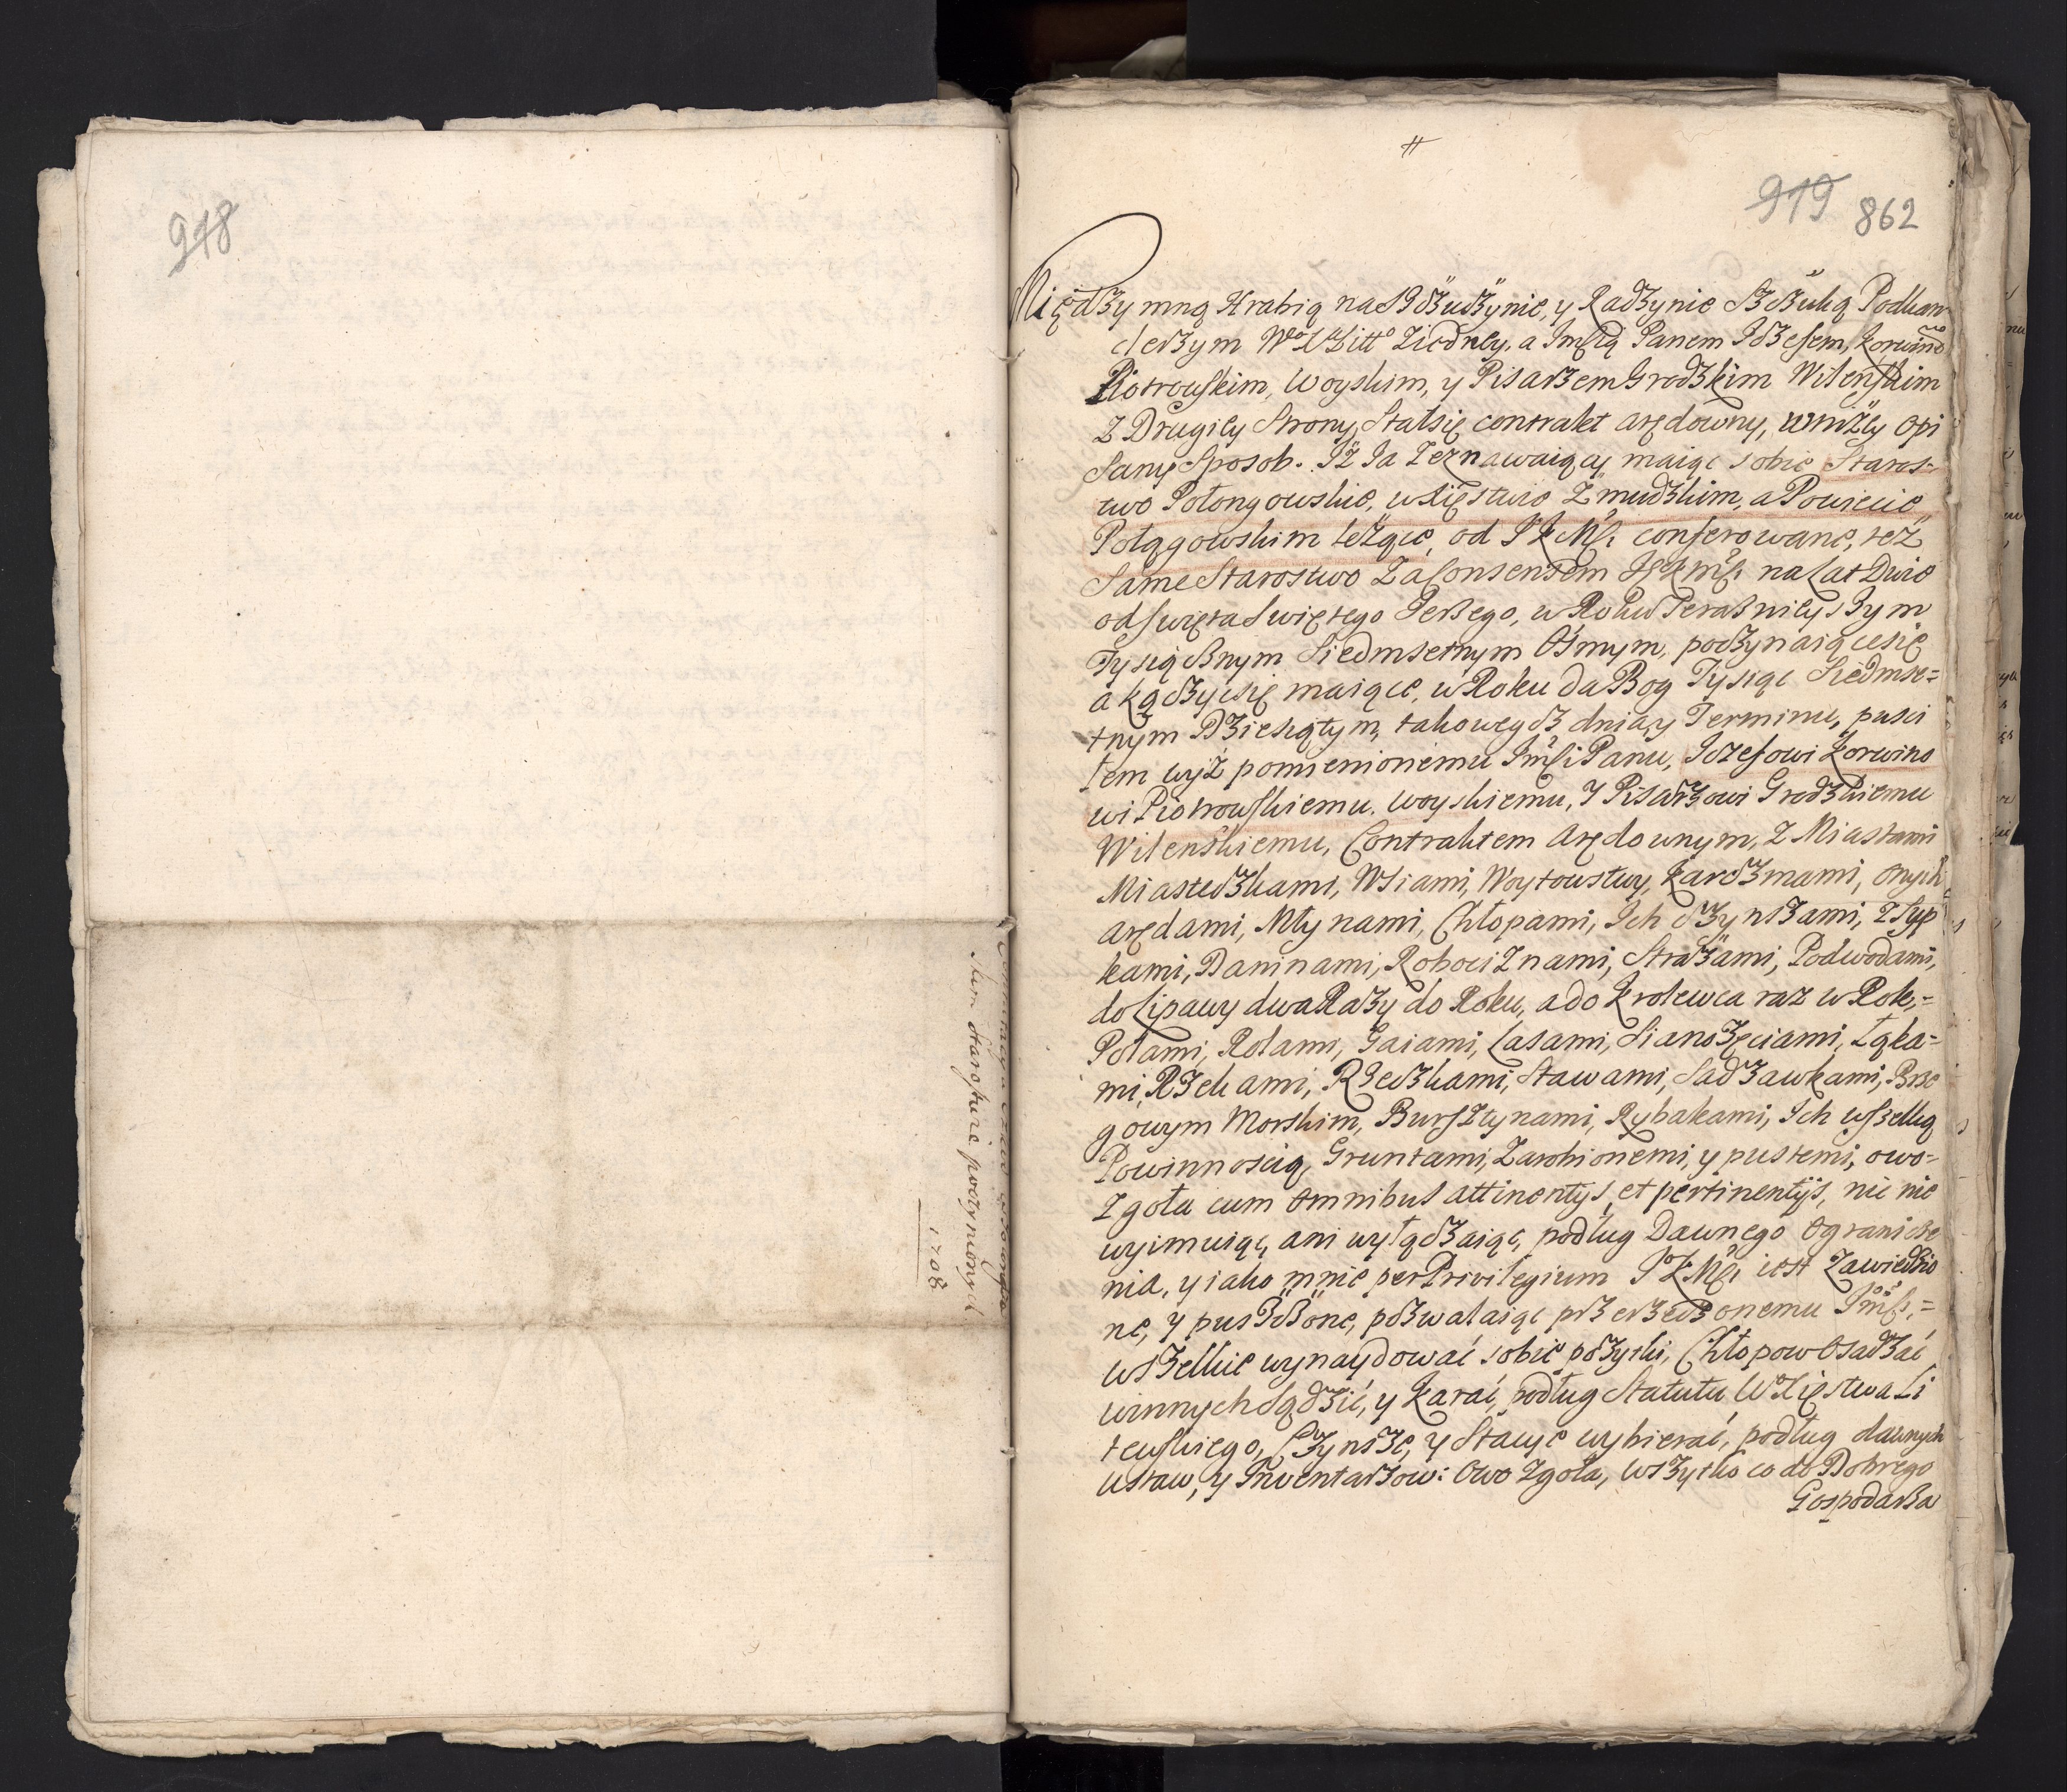 918
Sum Starostwie poczynionych
1708
919 862
Między mną Hrabią na Szczuczynie, y Radzynie Szczuką Podkan
clerzym Wo X Litto Ziedney, a Jmścią Panem Jozefem, Korwino
Piotrowskim, Woyskim, y Pisarzem Grodzkim Wilenskim
Z Drugiey Strony Stałsię contrakt arędowny, wniżey opi
Sany Sposob. Iż Ja Zeznawaiący maiąc sobie Staros-
two Połongowskie, w Xięstwie Zmudzkim, a Powiecie
Połągowskim leżące, od J K Mſi conferowane, też
Same Starostwo Za Consensem JKMſi na Lat Dwie
od Swięta Swiętego Jerzego, w Roku Teraznieyszym
Tysiącznym Siedmsetnym Osmym, poczynaiącesię
a kączycsię maiące, w Roku da Bog Tysiąc Siedmse=
tnym Dziesiątym, takowegoż dnia, y Terminu, pusci
łem wyż pomienionemu Jmści Panu, Jozefowi Korwino
wi Piotrowskiemu, Woyskiemu, y Pisarzowi Grodzkiemu
Wilenskiemu, Contraktem Arędownym, Z Miastami
Miasteczkami, Wsiami, Woytowstwy, Karczmami, onych
arędami, Młynami, Chłopami, Ich Czynszami, Zsyp
kami, Daninami, Robociznami, Strażami, Podwodami,
do Lipawy dwa Razy do Roku, a do Krolewca raz w Rok,=
Polami, Rolami, Gaiami, Lasami, Sianożęciami, Łąka=
mi, Rzekami, Rzeczkami, Stawami, Sadzawkami, Brze
gowym Morskim, Bursztynami, Rybakami, Ich wszelką
Powinnoscią, Gruntami, Zarobionemi, y pustemi, owo=
Zgoła cum omnibus attinentijs, et pertinentijs, nic nie
wyimuiąc, ani wyłączaiąc, podług Dawnego Ogranicze
nia, y iako mnie per Privilegium J K Mſi iest Zawiedzio
ne, y puszczone, pozwalaiąc przerzeczonemu Jmſi,=
wszelkie wynaydować sobie pożytki, Chłopow Osadzać
winnych Sądzić, y Karać, podług Statutu W Xięstwa Li
tewskiego, Czynsze, y Stacye wybierać, podług dawnych
ustaw, y Inwentarzow: Owo Zgoła, wszytko co do Dobrego
Gospodarza